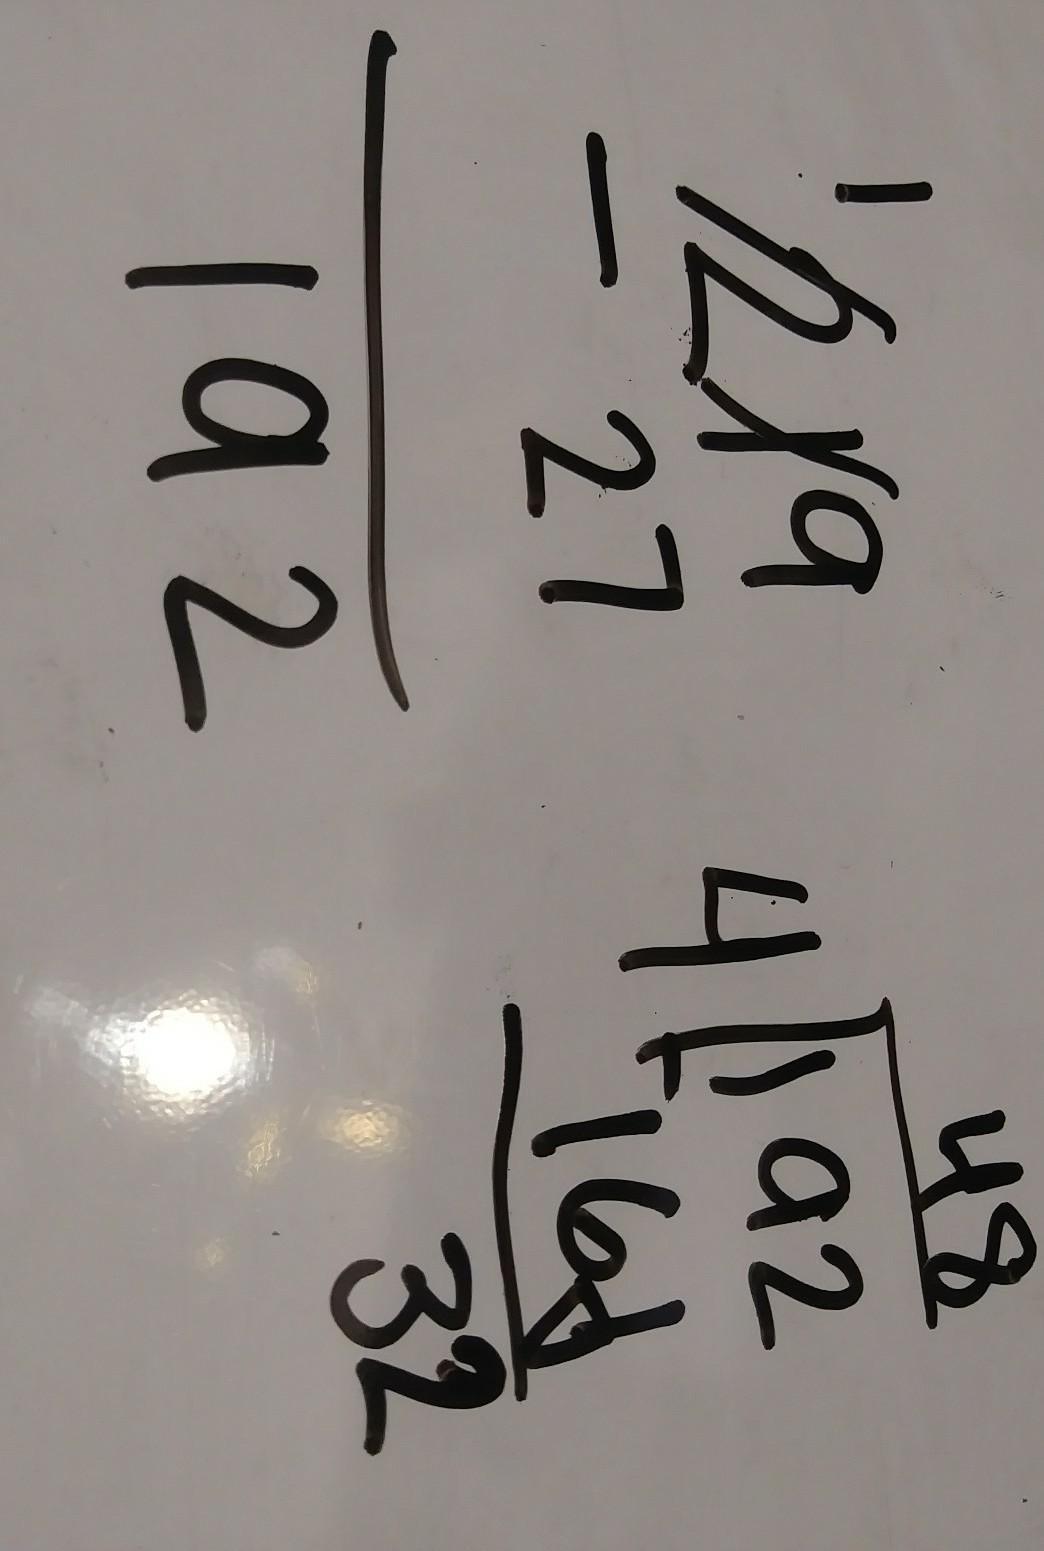 1
219
- 27
192
48
4 192
- 16
32